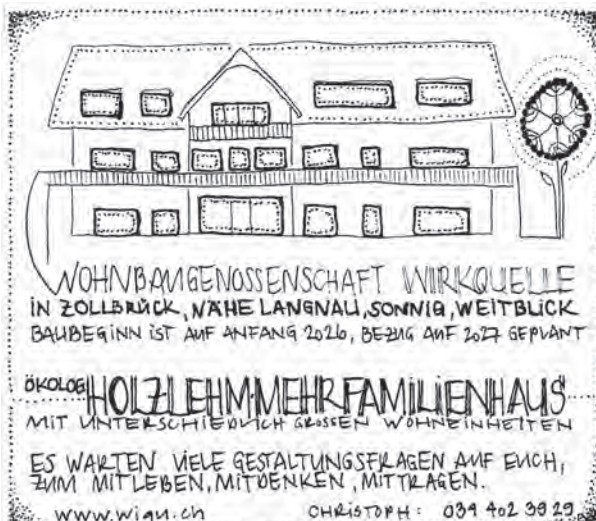 WOHNBAUGENOSSENSCHAFT WIRKQUELLE
IN ZOLLBRÜCK, NÄHE LANGNAU, SONNIG, WEITBLICK
BAUBEGINN IST AUF ANFANG 2026, BEZUG AUF 2027 GEPLANT
ÖKOLOG HOLZLEHMMEHRFAMILIENHAUS
MIT UNTERSCHIEDLICH GROSSEN WOHNEINHEITEN
ES WARTEN VIELE GESTALTUNGSFRAGEN AUF EUCH,
ZUM MITLEBEN, MITDENKEN, MITTRAGEN.
www.wiqu.ch CHRISTOPH: 034 402 39 29